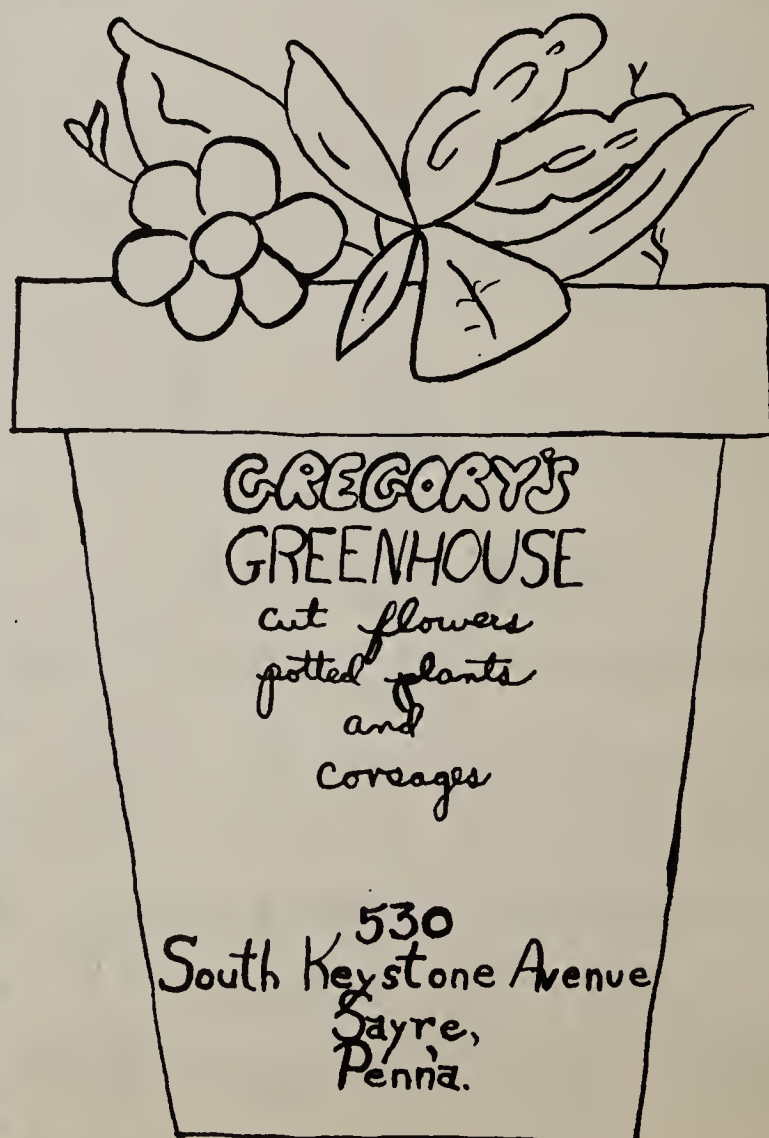 GREGORY'S
GREENHOUSE
cut flowers
potted plants
and
corsages
530
South Keystone Avenue
Sayre,
Penn'a.